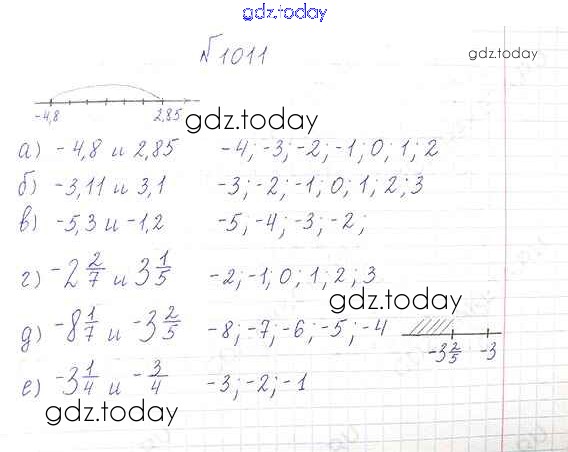 gdz.today
№1011
gdz.today
-4,8 2,85
gdz.today
а) -4,8 и 2,85 -4; -3; -2; -1; 0; 1; 2
б) -3,11 и 3,1 -3; -2; -1; 0; 1; 2; 3
в) -5,3 и -1,2 -5; -4; -3; -2;
г) -2 2/7 и 3 1/5 -2; -1; 0; 1; 2; 3
gdz.today
д) -8 1/7 и -3 2/5 -8; -7; -6; -5; -4
-3 2/5 -3
е) -3 1/4 и -3/4 -3; -2; -1
gdz.today